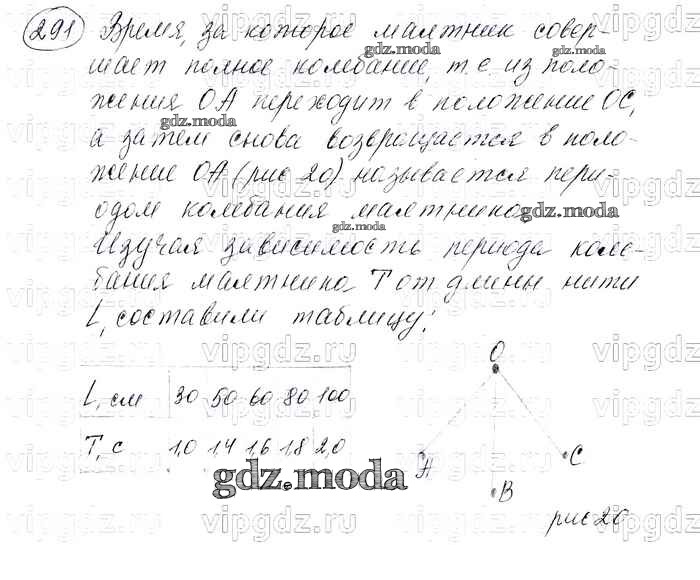 291 Время, за которое маятник совер-
шает полное колебание, т.е. из поло-
жения ОА переходит в положение ОС,
а затем снова возвращается в поло-
жение ОА (рис 20) называется пери-
одом колебания маятника.
Изучая зависимость периода коле-
бания маятника Т от длины нити
L, составили таблицу:
L, см 30 50 60 80 100
Т, с 1,0 1,4 1,6 1,8 2,0
О
А
В
С
рис 20
gdz.moda
vipgdz.ru